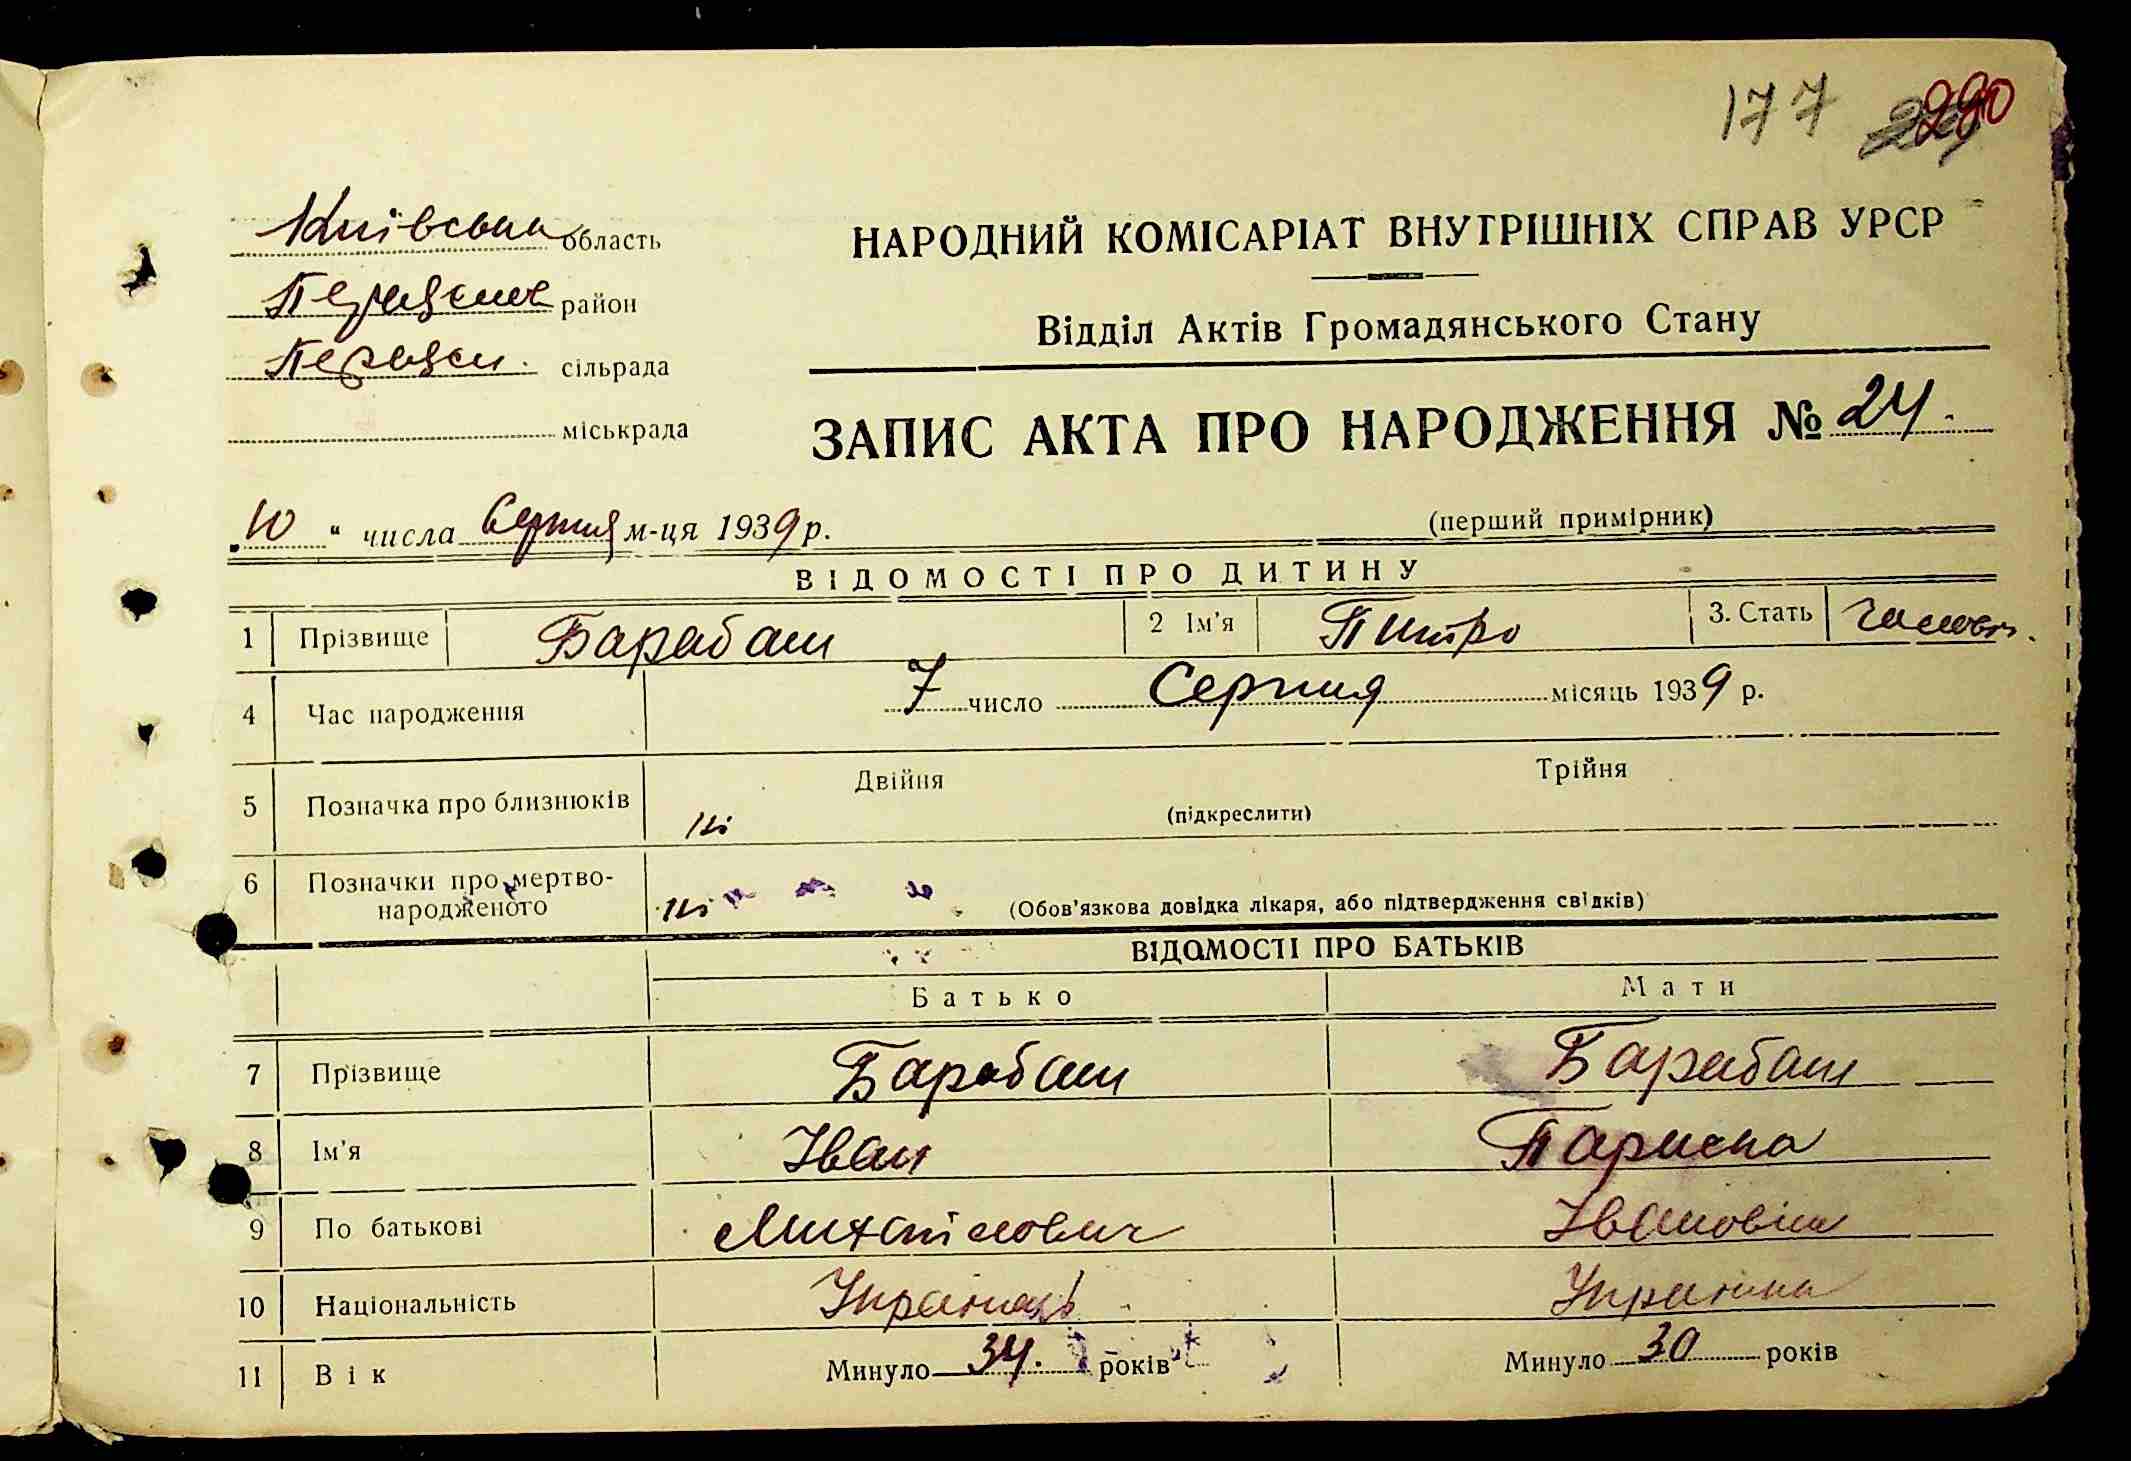 177 290
Київська область
район
сільрада
міськрада
НАРОДНИЙ КОМІСАРІАТ ВНУТРІШНІХ СПРАВ УРСР
Відділ Актів Громадянського Стану
ЗАПИС АКТА ПРО НАРОДЖЕННЯ № 24.
„10" числа Серпня м-ця 1939 р.
(перший примірник)
ВІДОМОСТІ ПРО ДИТИНУ
1 Прізвище Барабаш 2 Ім'я Питро 3. Стать
4 Час народження 7 число Серпня місяць 1939 р.
5 Позначка про близнюків Ні Двійня (підкреслити) Трійня
6 Позначки про мертво-
народженого Ні (Обов'язкова довідка лікаря, або підтвердження свідків)
ВІДОМОСТІ ПРО БАТЬКІВ
Батько Мати
7 Прізвище Барабаш Барабаш
8 Ім'я Іван Париска
9 По батькові Михайлович Івановна
10 Національність Українець Українка
11 Вік Минуло 34. років Минуло 30 років